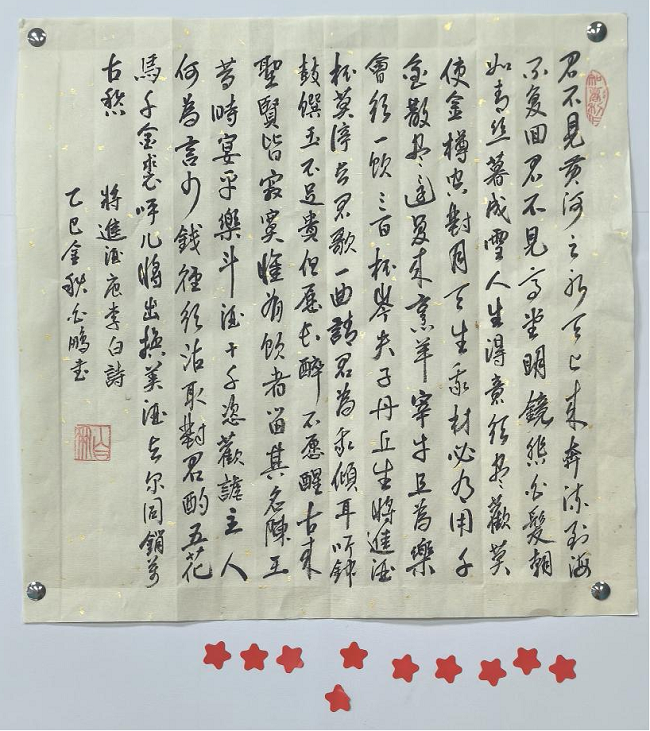 君不見黄河之水天上来奔流到海
不复回君不見高堂明鏡悲白髮朝
如青丝暮成雪人生得意须尽歡莫
使金樽空對月天生我材必有用千
金散尽还复来烹羊宰牛且為樂
會须一飲三百杯岑夫子丹丘生將進酒
杯莫停与君歌一曲請君為我傾耳听钟
鼓饌玉不足貴但愿长醉不愿醒古来
聖賢皆寂寞惟有飲者留其名陳王
昔時宴平樂斗酒十千恣歡謔主人
何為言少錢徑须沽取對君酌五花
馬千金裘呼儿將出换美酒与尔同銷萬
古愁
將進酒唐李白詩
乙巳金秋白鵬书